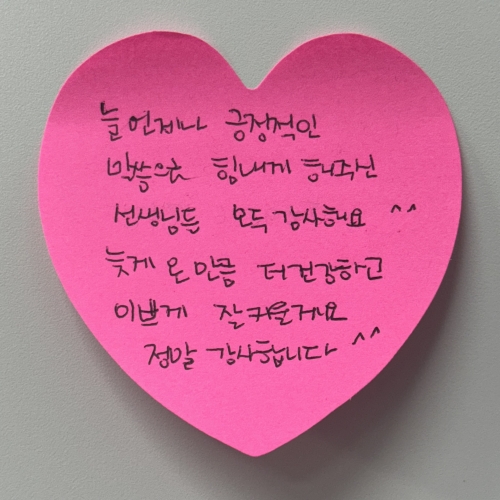 늘 언제나 긍정적인
말씀으로 힘내게 해주신
선생님들 모두 감사해요 ^^
늦게 온 만큼 더 건강하고
이쁘게 잘 키울게요
정말 감사합니다 ^^